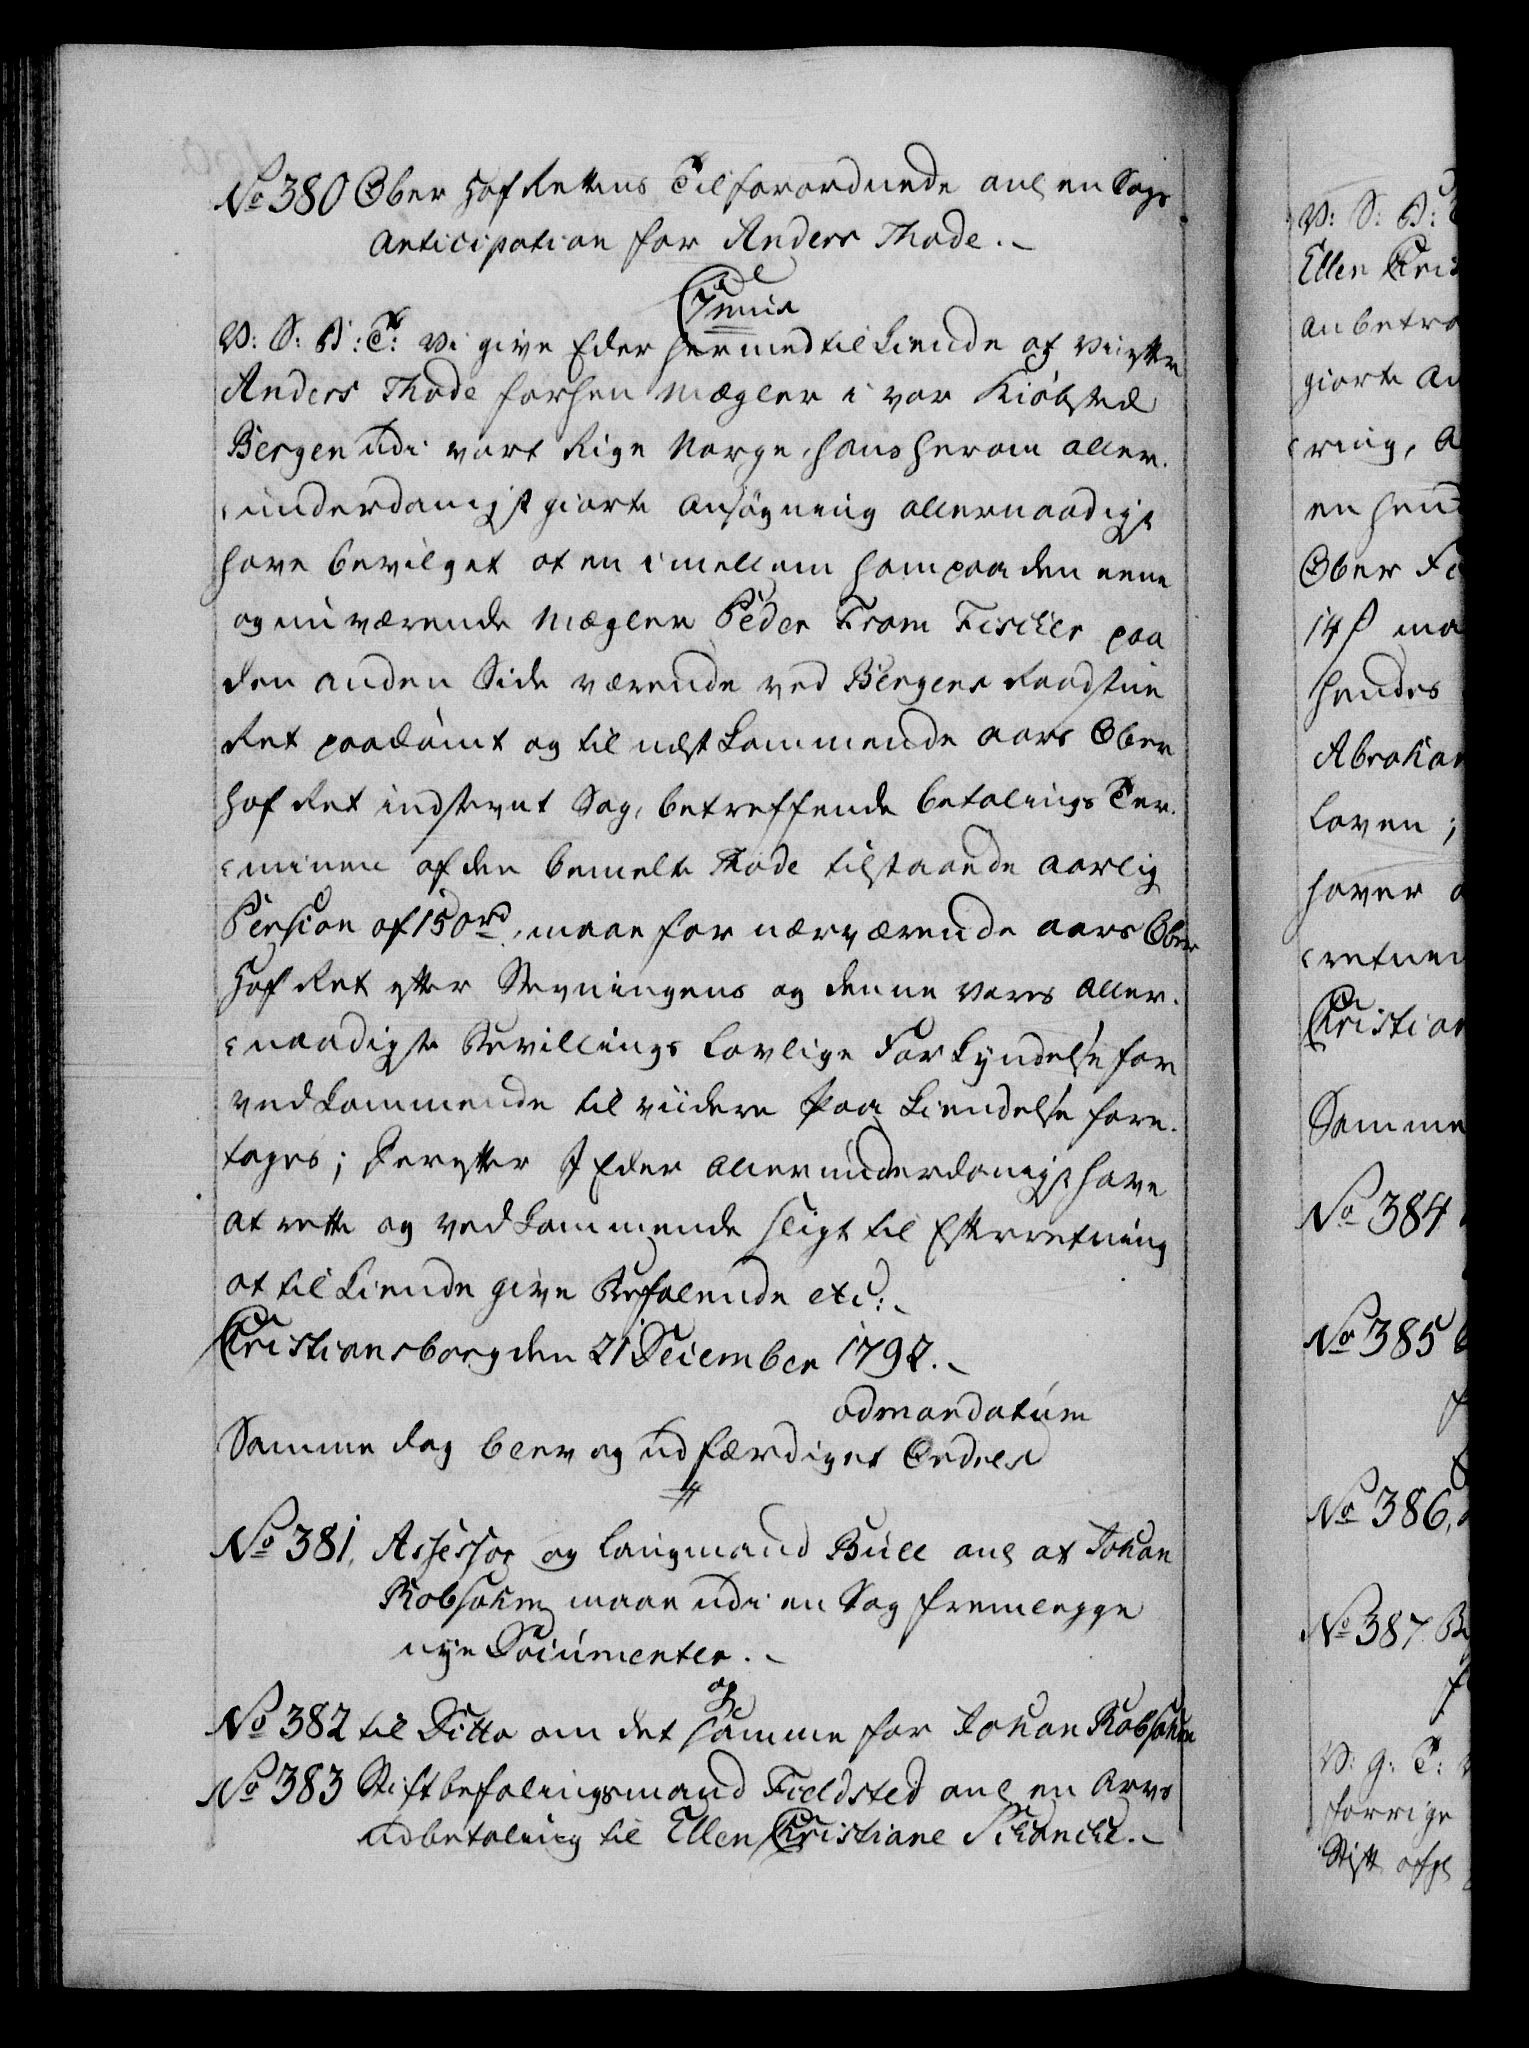 No 380 Ober Hof Rettens Tilforordnede anl en Sags
Anticipation for Anders Thode.
C7mus
V: S: B: T: Vi give Eder hermed tilkiende at Vi efter
Anders Thode forhen Mægler i vor Kiöbsted
Bergen udi vort Rige Norge, hans herom aller-
underdanigst giorte Ansögning allernaadigst
have bevilget at en imellem ham paa den eene
og nu værende Mægler Peder From Fischer paa
den anden Side værende ved Bergens Raadstue
Ret paadömt og til næst kommende Aars Ober
Hof Ret indstevnt Sag, betreffende Betalings Ter-
minen af den bemelte Thode tilstaaende aarlig
Pension af 150 rd, maae for nærværende Aars Ober
Hof Ret efter Stevningens og denne Vores aller-
naadigste Bevillings lovlige Forkyndelse for
vedkommende til viidere Paakiendelse fore-
tages; Derefter I Eder allerunderdanigst have
at rette og vedkommende sligt til Efterretning
at tilkiende give Befalende etc:
Christiansborg den 21 December 1792.
ad mandatum
Samme dag blev og udfærdiget Ordres
No 381, Assessor og Laugmand Bull anl at Johan
Robsahm maae udi en Sag fremlegge
nye Documenter.
No 382 til Ditto om det samme for Johan Robsahm
No 383 Stiftbefalingsmand Fieldsted anl en Arvs
udbetaling til Ellen Christiane Schancke.
V: S: B:
Ellen Chri
anbetro
giorte An
ring, A
en hend
Ober Fo
14 ß ma
hendes
Abraham
Loven;
haver
retnin
Christian
Samme
No 384
No 385
No 386,
No 387 B
V: G: T:
forrige
Stift